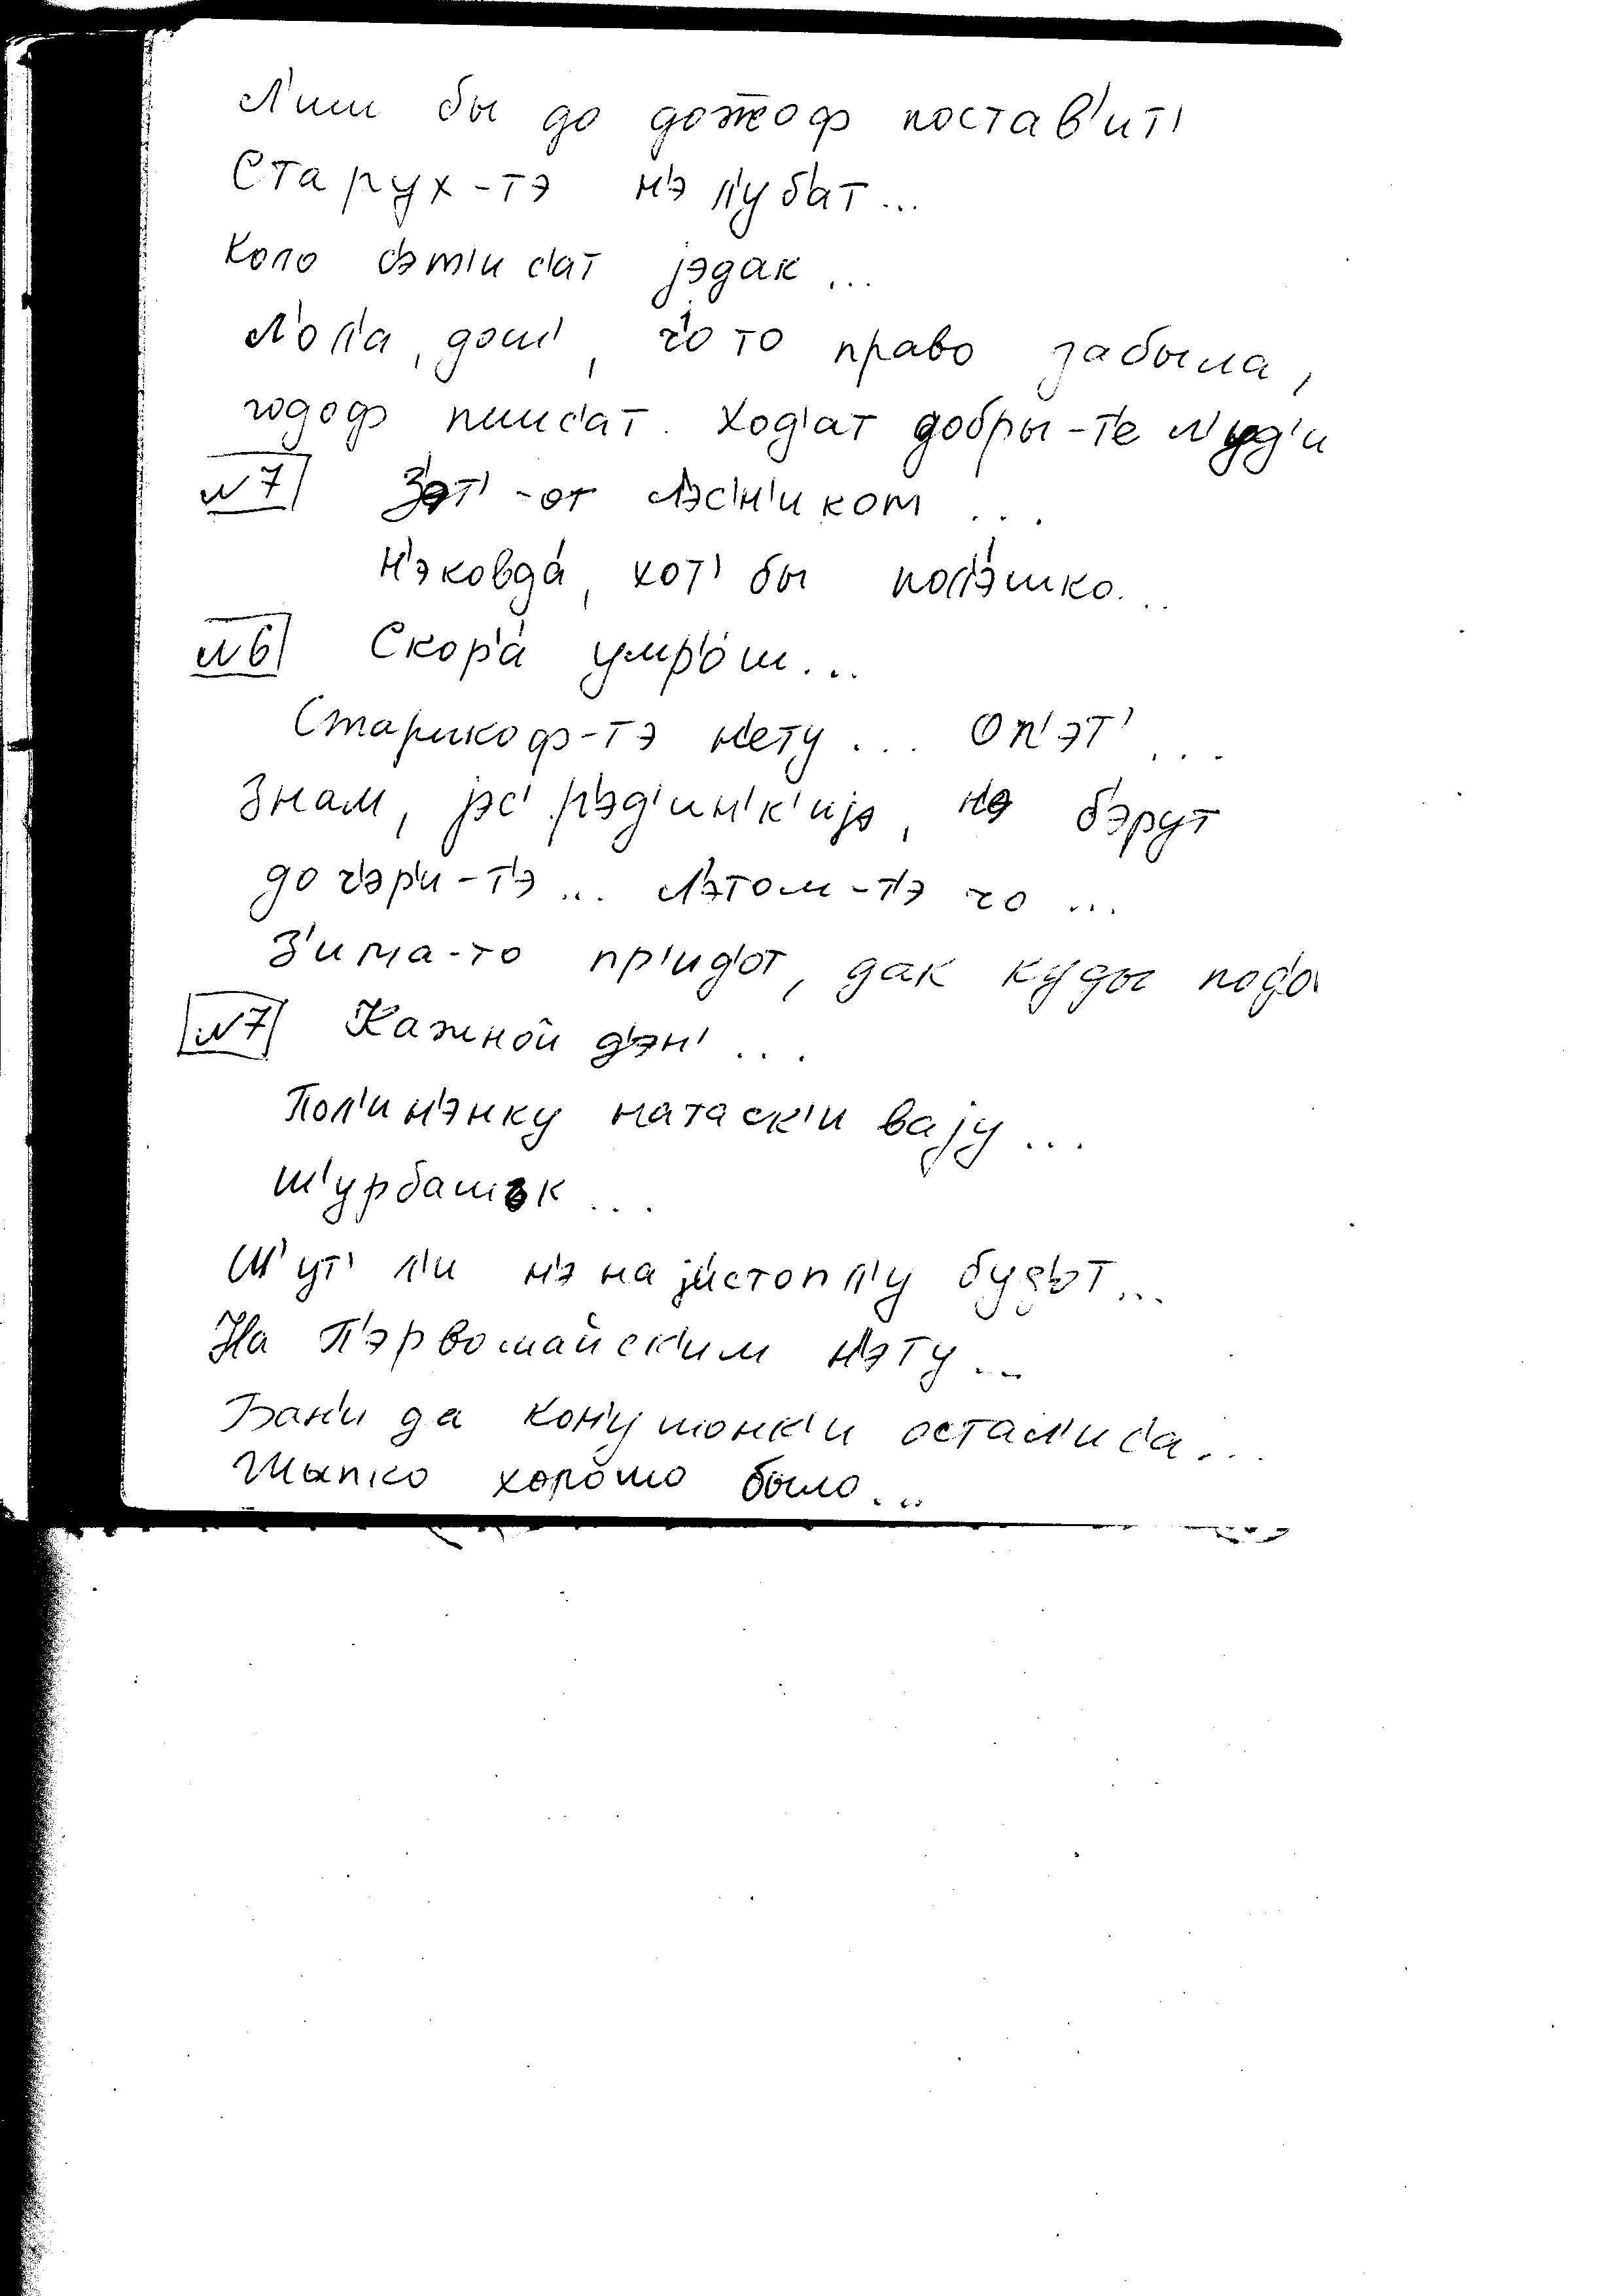 Л'иш бы до дожжоф постав'ит'
Старух-тэ н'э л'уб'ат...
Коло с'эм'ис'ат јэдак...
Л'ол'а, дош', ч'о то право забыла,
годоф пиис'ат. Ход'ат добры-т'е л'уд'и
№7 З'ат'-от л'эс'н'иком...
н'эковда́, хот' бы пол'э́шко...
№6 Скор'а́ умр'о́ш...
Старикоф-тэ н'ету... Оп'эт'...
Знам, јэс' р'эд'ин'к'ијэ, н'э б'эрут
доч'эр'и-т'э... Л'этом-т'э чо...
З'има-то пр'ид'от, дак куды под'о
№7 Кажной д'эн'...
Пол'ин'энку натаск'ивају...
Ш'урбашък...
Ш'ут' л'и н'э најистопл'у будът...
На П'эрвомайск'им н'эту...
Бан'и да кон'ушонк'и остал'ис'а...
Шыпко хорошо было...